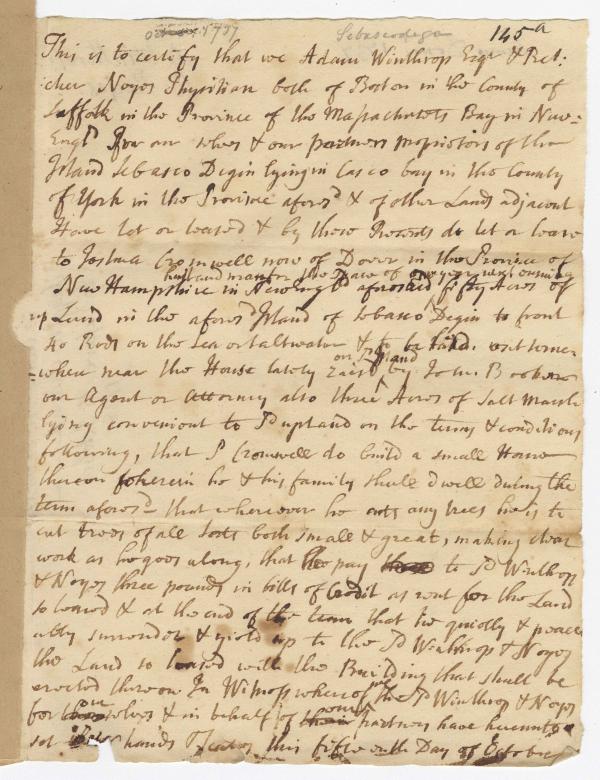 1737 Sebascodega 145a
This is to certify that we Adam Winthrop Esqr & Bel:
:cher Noyes Physitian both of Boston in the County of
Suffolk in the Province of the Massachusets Bay in New=
Engld for our selves & our partners proprietors of the
Island Sebasco Degin lying in Casco bay in the County
of York in the Province aforesd & of other Lands adjacent
Have let or leased & by these Presents do let or lease
to Joshua Cromwell now of Dover in the Province of
husbandman for the Space of one year next ensuing
New Hampshire in New Engld aforesaid fifty Acres of
up Land in the aforesd Island of Sebasco Degin to front
40 Rods on the Sea or saltwater & to be laid out some=
on sd Island
=where near the House lately raised by John
our Agent or Attorney also three Acres of Salt Marsh
lying convenient to sd upland on the terms & conditions
following, that sd Cromwell do build a small House
thereon wherein he & his family shall dwell during the
term aforesd that wherever he cuts any trees he is to
cut trees of all sorts both small & great, making clear
work as he goes along, that he pay to sd Winthrop
& Noyes three pounds in bills of Credit as rent for the Land
so leased & at the end of the term that he quietly & peace
ably surrender & yield up to the sd Winthrop & Noyes
the Land so leased with the Building that shall be
erected thereon In Witness whereof we the sd Winthrop & Noyes
for our selves & in behalf of our partners have hereunto
set our hands & seales this fifteenth Day of October